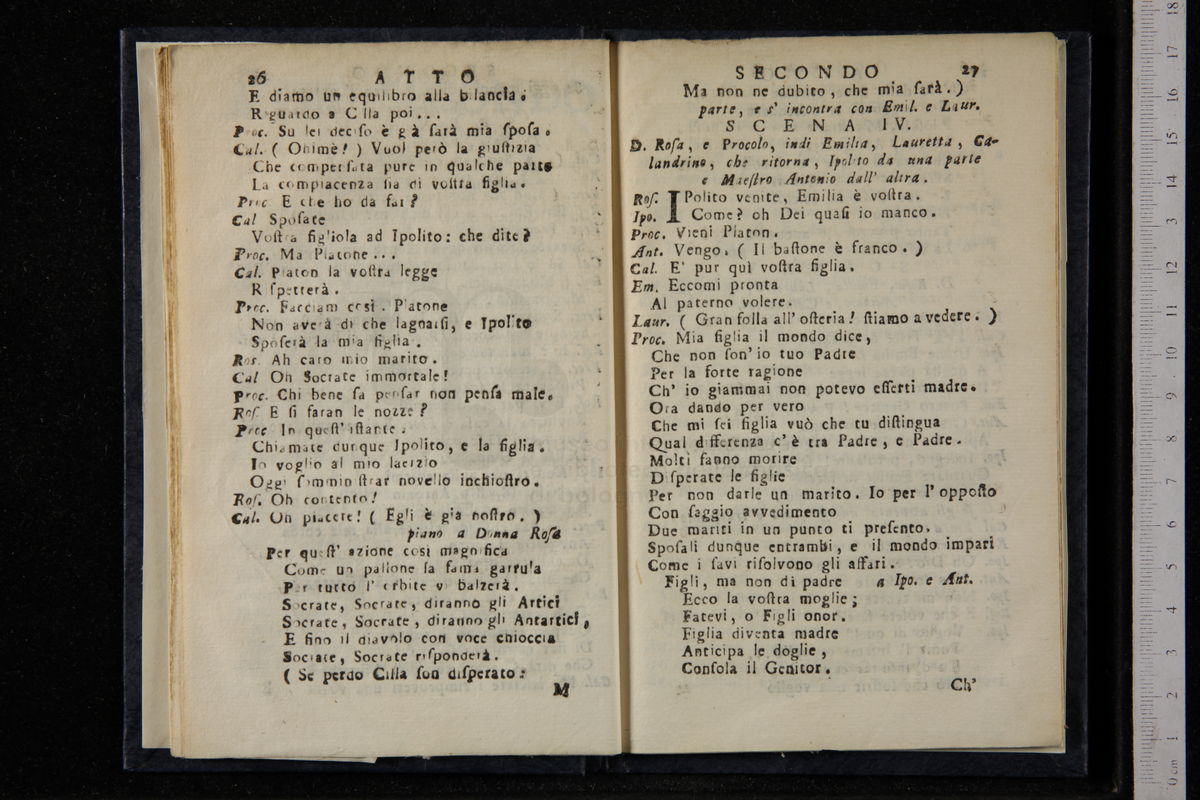 26 ATTO
E diamo un equilibro alla bilancia;
Riguardo a Cilla poi...
Proc. Su lei deciso è già sarà mia sposa.
Cal. ( Ohimè! ) Vuol però la giustizia
Che compensata pure in qualche parte
La compiacenza sia di vostra figlia.
Proc E che ho da far?
Cal Sposate
Vostra figliola ad Ipolito: che dite?
Proc. Ma Platone...
Cal. Platon la vostra legge
Rispetterà.
Proc. Facciam così. Platone
Non averà di che lagnarsi, e Ipolito
Sposerà la mia figlia.
Ros. Ah caro mio marito.
Cal Oh Socrate immortale!
Proc. Chi bene sa pensar non pensa male.
Ros. E si faran le nozze?
Proc In quest' istante.
Chiamate dunque Ipolito, e la figlia.
Io voglio al mio lacizio
Oggi somministrar novello inchiostro.
Ros. Oh contento!
Cal. Oh piacere! ( Egli è già nostro. )
piano a Donna Rosa
Per quest' azione così magnifica
Come un pallone la fama garrula
Per tutto l' orbite vi balzerà.
Socrate, Socrate, diranno gli Artici
Socrate, Socrate, diranno gli Antartici,
E fino il diavolo con voce chioccia
Socrate, Socrate risponderà.
( Se perdo Cilla son disperato:
M
SECONDO 27
Ma non ne dubito, che mia sarà. )
parte, e s' incontra con Emil. e Laur.
SCENA IV.
D. Rosa, e Procolo, indi Emilia, Lauretta, Ca-
landrino, che ritorna, Ipolito da una parte
e Maestro Antonio dall' altra.
Ros. IPolito venite, Emilia è vostra.
Ipo. Come? oh Dei quasi io manco.
Proc. Vieni Platon.
Ant. Vengo. ( Il bastone è franco. )
Cal. E' pur quì vostra figlia.
Em. Eccomi pronta
Al paterno volere.
Laur. ( Gran folla all' osteria! stiamo a vedere. )
Proc. Mia figlia il mondo dice,
Che non son' io tuo Padre
Per la forte ragione
Ch' io giammai non potevo esserti madre.
Ora dando per vero
Che mi sei figlia vuò che tu distingua
Qual differenza c' è tra Padre, e Padre.
Molti fanno morire
Disperate le figlie
Per non darle un marito. Io per l' opposto
Con saggio avvedimento
Due mariti in un punto ti presento.
Sposali dunque entrambi, e il mondo impari
Come i savi risolvono gli affari.
Figli, ma non di padre a Ipo. e Ant.
Ecco la vostra moglie;
Fatevi, o Figli onor.
Figlia diventa madre
Anticipa le doglie,
Consola il Genitor.
Ch'
0 cm 1 2 3 4 5 6 7 8 9 10 11 12 13 14 15 16 17 18